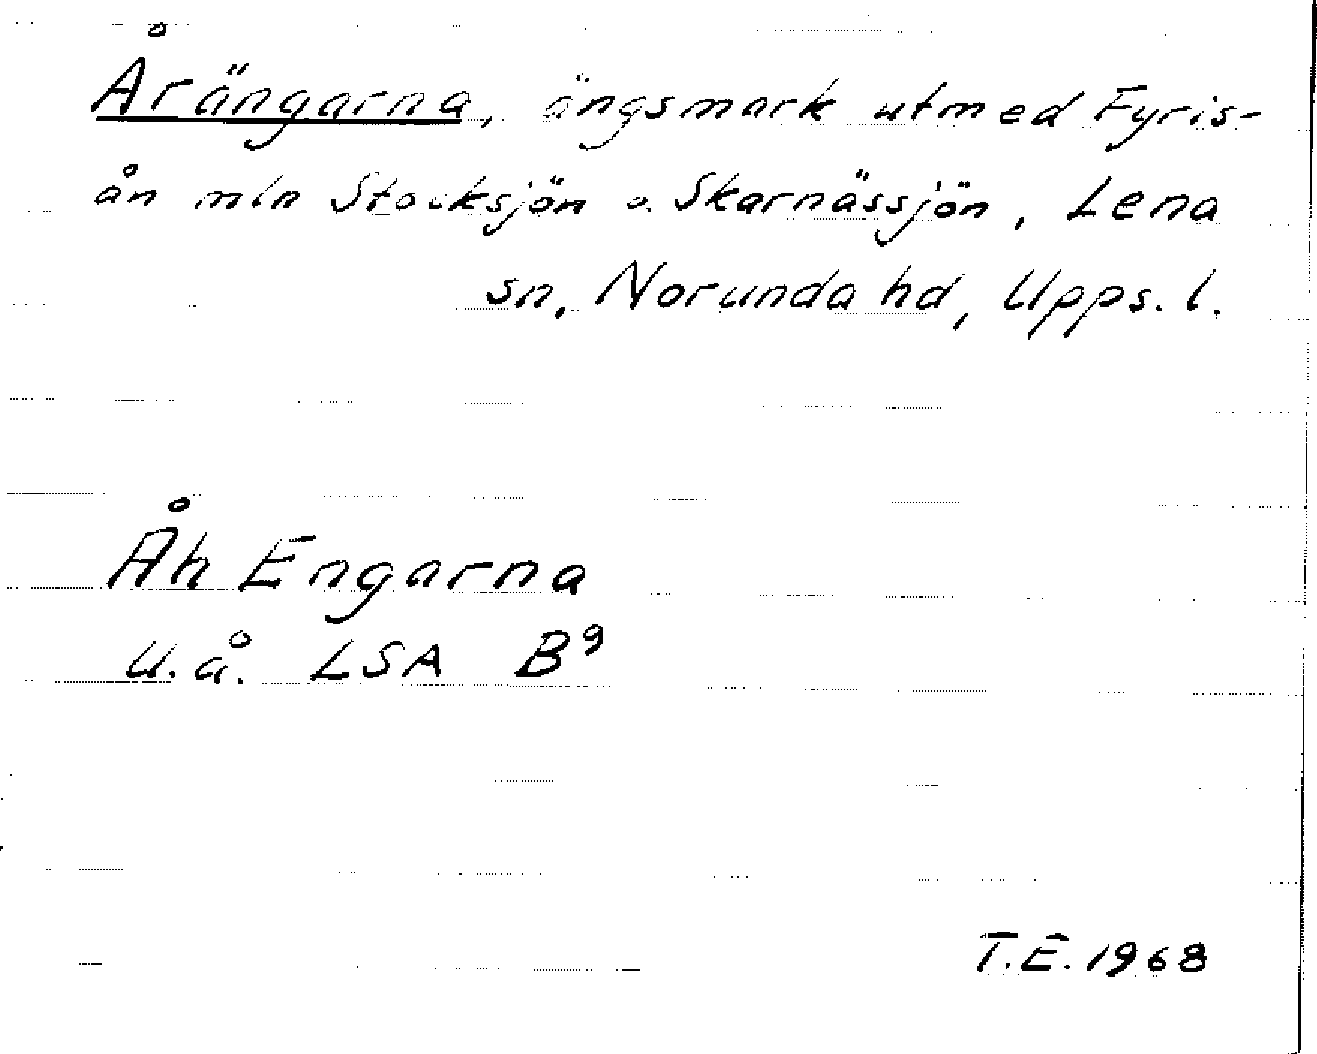 Årängarna, ängsmark utmed Fyris-
ån mln Stocksjön o. Skarnässjön, Lena
sn, Norunda hd, Upps. l.
Åh Engarna
u.å. LSA B⁹
T.E. 1968